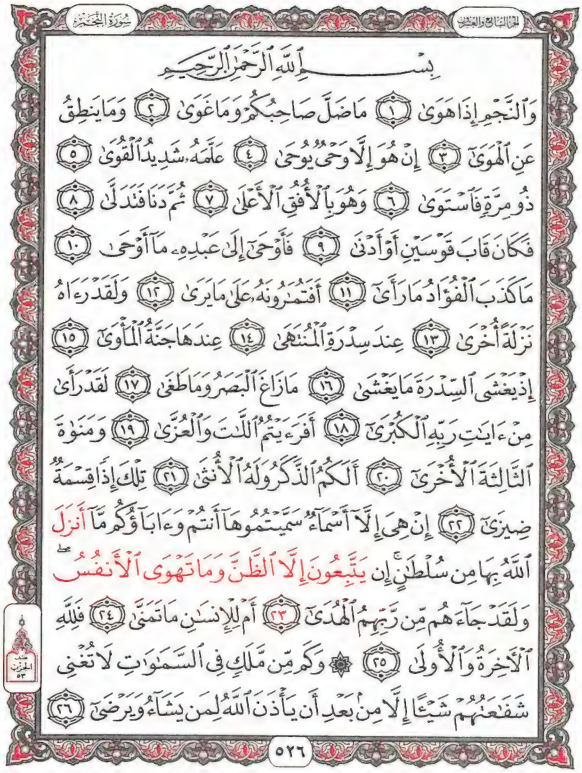 سورة النجم
الجزء السابع والعشرون
بِسْمِ ٱللَّهِ ٱلرَّحْمَٰنِ ٱلرَّحِيمِ
وَٱلنَّجْمِ إِذَا هَوَىٰ ١ مَا ضَلَّ صَاحِبُكُمْ وَمَا غَوَىٰ ٢ وَمَا يَنطِقُ
عَنِ ٱلْهَوَىٰٓ ٣ إِنْ هُوَ إِلَّا وَحْىٌ يُوحَىٰ ٤ عَلَّمَهُۥ شَدِيدُ ٱلْقُوَىٰ ٥
ذُو مِرَّةٍ فَٱسْتَوَىٰ ٦ وَهُوَ بِٱلْأُفُقِ ٱلْأَعْلَىٰ ٧ ثُمَّ دَنَا فَتَدَلَّىٰ ٨
فَكَانَ قَابَ قَوْسَيْنِ أَوْ أَدْنَىٰ ٩ فَأَوْحَىٰٓ إِلَىٰ عَبْدِهِۦ مَآ أَوْحَىٰ ١٠
مَا كَذَبَ ٱلْفُؤَادُ مَا رَأَىٰٓ ١١ أَفَتُمَٰرُونَهُۥ عَلَىٰ مَا يَرَىٰ ١٢ وَلَقَدْ رَءَاهُ
نَزْلَةً أُخْرَىٰ ١٣ عِندَ سِدْرَةِ ٱلْمُنتَهَىٰ ١٤ عِندَهَا جَنَّةُ ٱلْمَأْوَىٰٓ ١٥
إِذْ يَغْشَى ٱلسِّدْرَةَ مَا يَغْشَىٰ ١٦ مَا زَاغَ ٱلْبَصَرُ وَمَا طَغَىٰ ١٧ لَقَدْ رَأَىٰ
مِنْ ءَايَٰتِ رَبِّهِ ٱلْكُبْرَىٰٓ ١٨ أَفَرَءَيْتُمُ ٱللَّٰتَ وَٱلْعُزَّىٰ ١٩ وَمَنَوٰةَ
ٱلثَّالِثَةَ ٱلْأُخْرَىٰٓ ٢٠ أَلَكُمُ ٱلذَّكَرُ وَلَهُ ٱلْأُنثَىٰ ٢١ تِلْكَ إِذًا قِسْمَةٌ
ضِيزَىٰٓ ٢٢ إِنْ هِىَ إِلَّآ أَسْمَآءٌ سَمَّيْتُمُوهَآ أَنتُمْ وَءَابَآؤُكُم مَّآ أَنزَلَ
ٱللَّهُ بِهَا مِن سُلْطَٰنٍ ۚ إِن يَتَّبِعُونَ إِلَّا ٱلظَّنَّ وَمَا تَهْوَى ٱلْأَنفُسُ ۖ
وَلَقَدْ جَآءَهُم مِّن رَّبِّهِمُ ٱلْهُدَىٰٓ ٢٣ أَمْ لِلْإِنسَٰنِ مَا تَمَنَّىٰ ٢٤ فَلِلَّهِ
ٱلْـَٔاخِرَةُ وَٱلْأُولَىٰ ٢٥ ۞ وَكَم مِّن مَّلَكٍ فِى ٱلسَّمَٰوَٰتِ لَا تُغْنِى
شَفَٰعَتُهُمْ شَيْـًٔا إِلَّا مِنۢ بَعْدِ أَن يَأْذَنَ ٱللَّهُ لِمَن يَشَآءُ وَيَرْضَىٰٓ ٢٦
الحزب
٥٣
٥٢٦